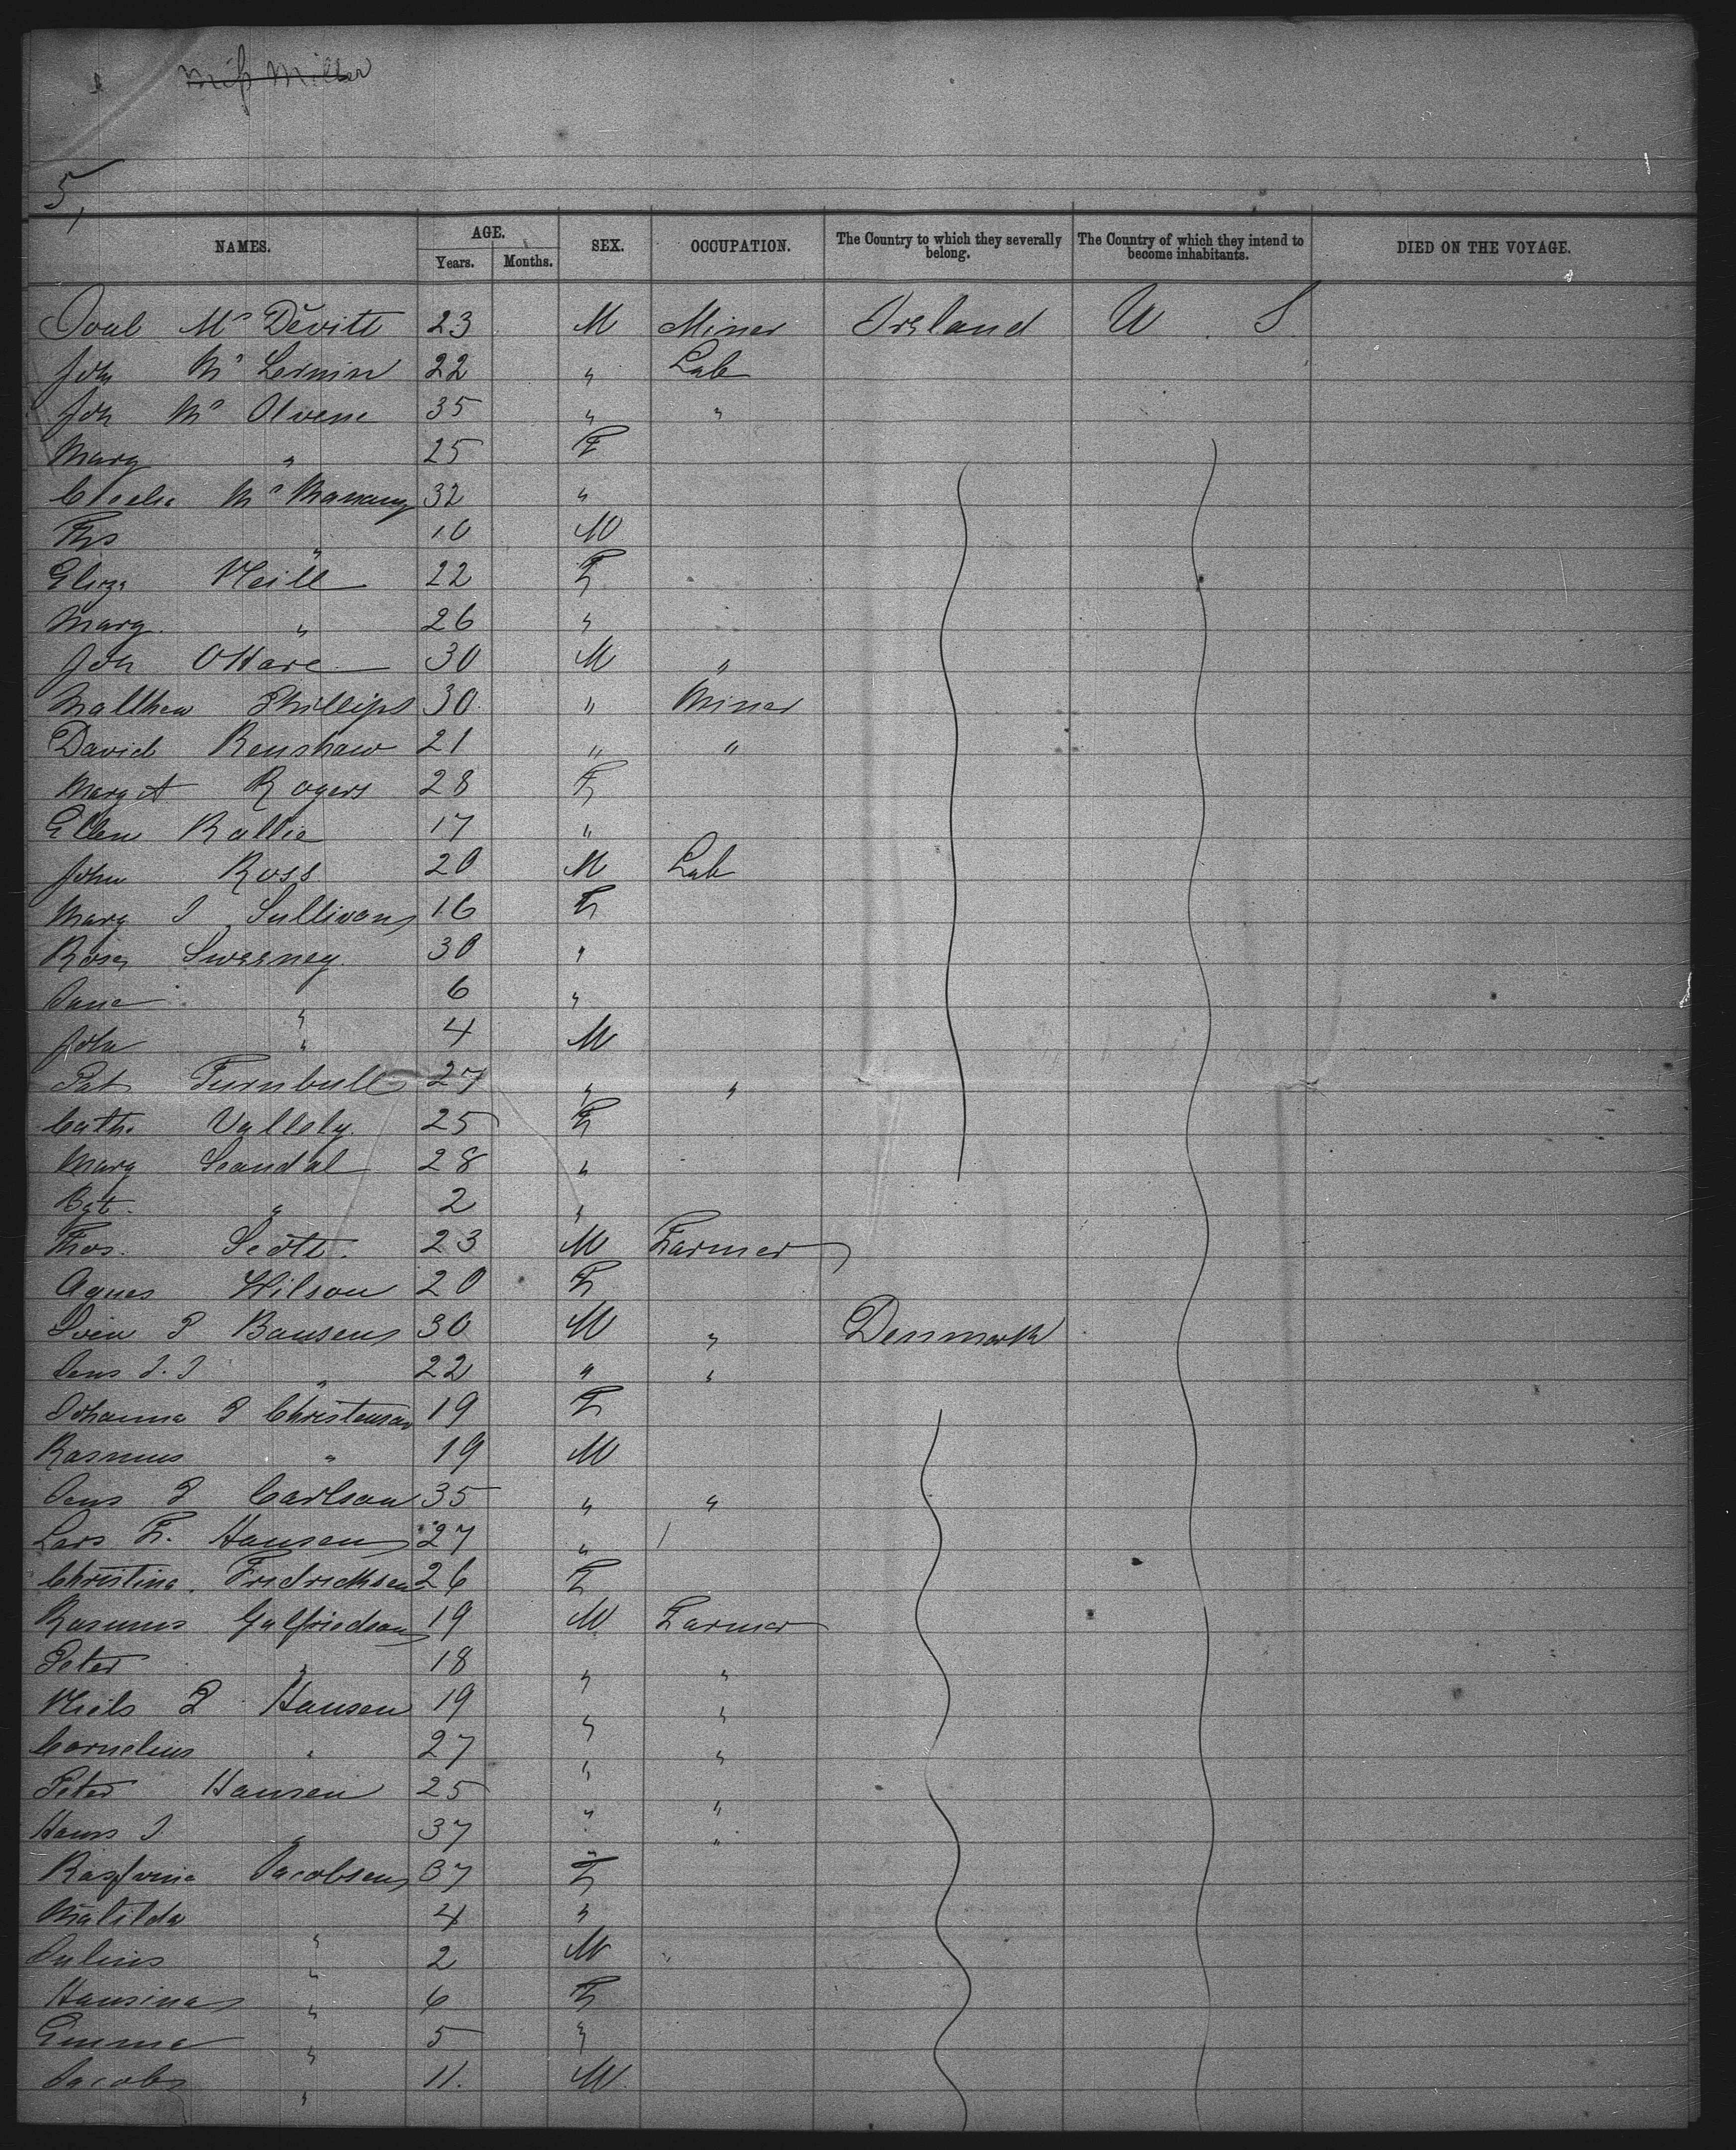 Miss Miller
5,
NAMES. AGE. SEX. OCCUPATION. The Country to which they severally belong. The Country of which they intend to become inhabitants. DIED ON THE VOYAGE.
Years. Months.
Mc Devitt 23 M Miner Ireland U S
John Mc 22 " Lab
Joh Mc 35 " "
Mary " 25 F
Mc 32 "
Ths " 10 M
Eliza Neill 22 F
Mary. " 26 "
Joh OHare 30 M "
Matthew Phillips 30 " Miner
David Renshaw 21 " "
Margt Rogers 28 F
Ellen 17 "
John Ross 20 M Lab
Mary J Sullivan 16 F
Rose Sweeney 30 "
Jane " 6 "
John " 4 M
Pat Turnbull 27 " "
Cath. Vallely 25 F
Mary 28 "
Bgt. " 2 "
Thos. Scott. 23 M Farmer
Agnes Wilson 20 F
P 30 M " Denmark
Jens J. J " 22 " "
Johanna P Christensen 19 F
Rasmus " 19 M
Jens P Carlsen 35 " "
Lars F. Hansen 27 "
Christina. Fredricksen 26 F
Rasmus 19 M Farmer
Peter " 18 " "
Niels P Hansen 19 " "
Cornelius " 27 " "
Peter Hansen 25 " "
Hans J " 37 " "
Jacobsen 37 F
Matilda " 4 "
Julius " 2 M
Hansina " 6 F
Emma " 5 "
Jacob " 11. M